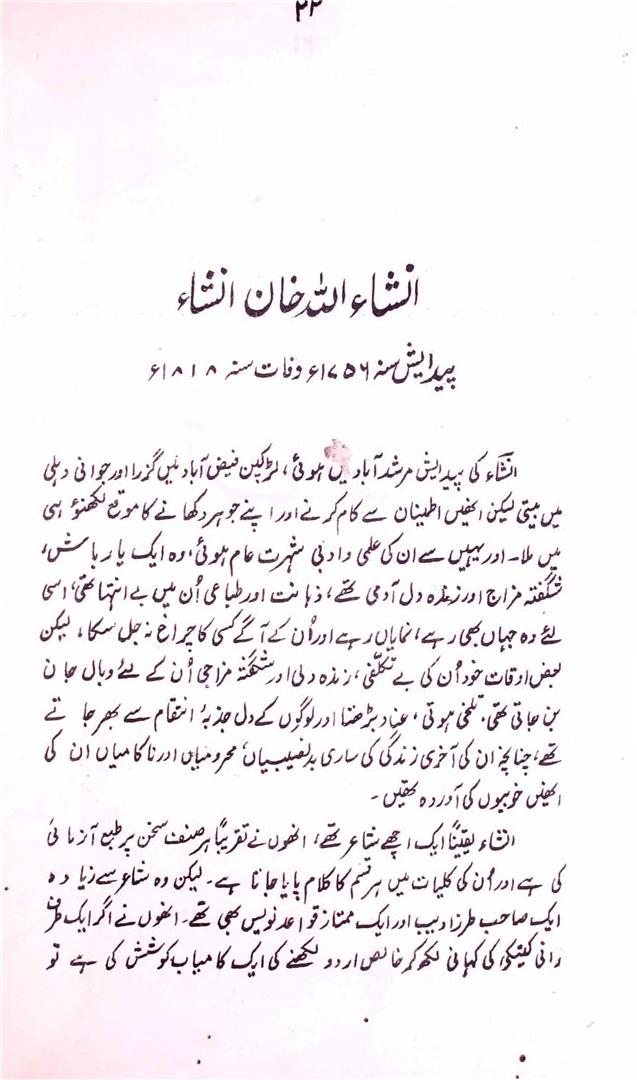 ۲۲
انشاء اللہ خان انشاء
پیدایش سنہ ۱۷۵۶ء وفات سنہ ۱۸۱۸ء
انشاء کی پیدایش مرشد آباد میں ہوئی، لڑکپن فیض آباد میں گزرا اور جوانی دہلی
میں بیتی لیکن انھیں اطمینان سے کام کرنے اور اپنے جوہر دکھانے کا موقع لکھنؤ ہی
میں ملا۔ اور یہیں سے ان کی علمی و ادبی شہرت عام ہوئی، وہ ایک یار باش،
شگفتہ مزاج اور زندہ دل آدمی تھے، ذہانت اور طباعی اُن میں بے انتہا تھی، اسی
لئے وہ جہاں بھی رہے، نمایاں رہے اور اُن کے آگے کسی کا چراغ نہ جل سکا، لیکن
بعض اوقات خود اُن کی بے تکلفی، زندہ دلی اور شگفتہ مزاجی اُن کے لئے وبال جان
بن جاتی تھی، تلخی ہوتی، عناد بڑھتا اور لوگوں کے دل جذبۂ انتقام سے بھر جاتے
تھے، چنانچہ ان کی آخری زندگی کی ساری بد نصیبیاں، محرومیاں اور ناکامیاں ان کی
انھیں خوبیوں کی آوردہ تھیں۔
انشاء یقیناً ایک اچھے شاعر تھے، انھوں نے تقریباً ہر صنف سخن پر طبع آزمائی
کی ہے اور اُن کی کلیات میں ہر قسم کا کلام پایا جاتا ہے۔ لیکن وہ شاعر سے زیادہ
ایک صاحب طرز ادیب اور ایک ممتاز قواعد نویس بھی تھے۔ انھوں نے اگر ایک طرف
رانی کیتکی کی کہانی لکھ کر خالص اردو لکھنے کی ایک کامیاب کوشش کی ہے تو